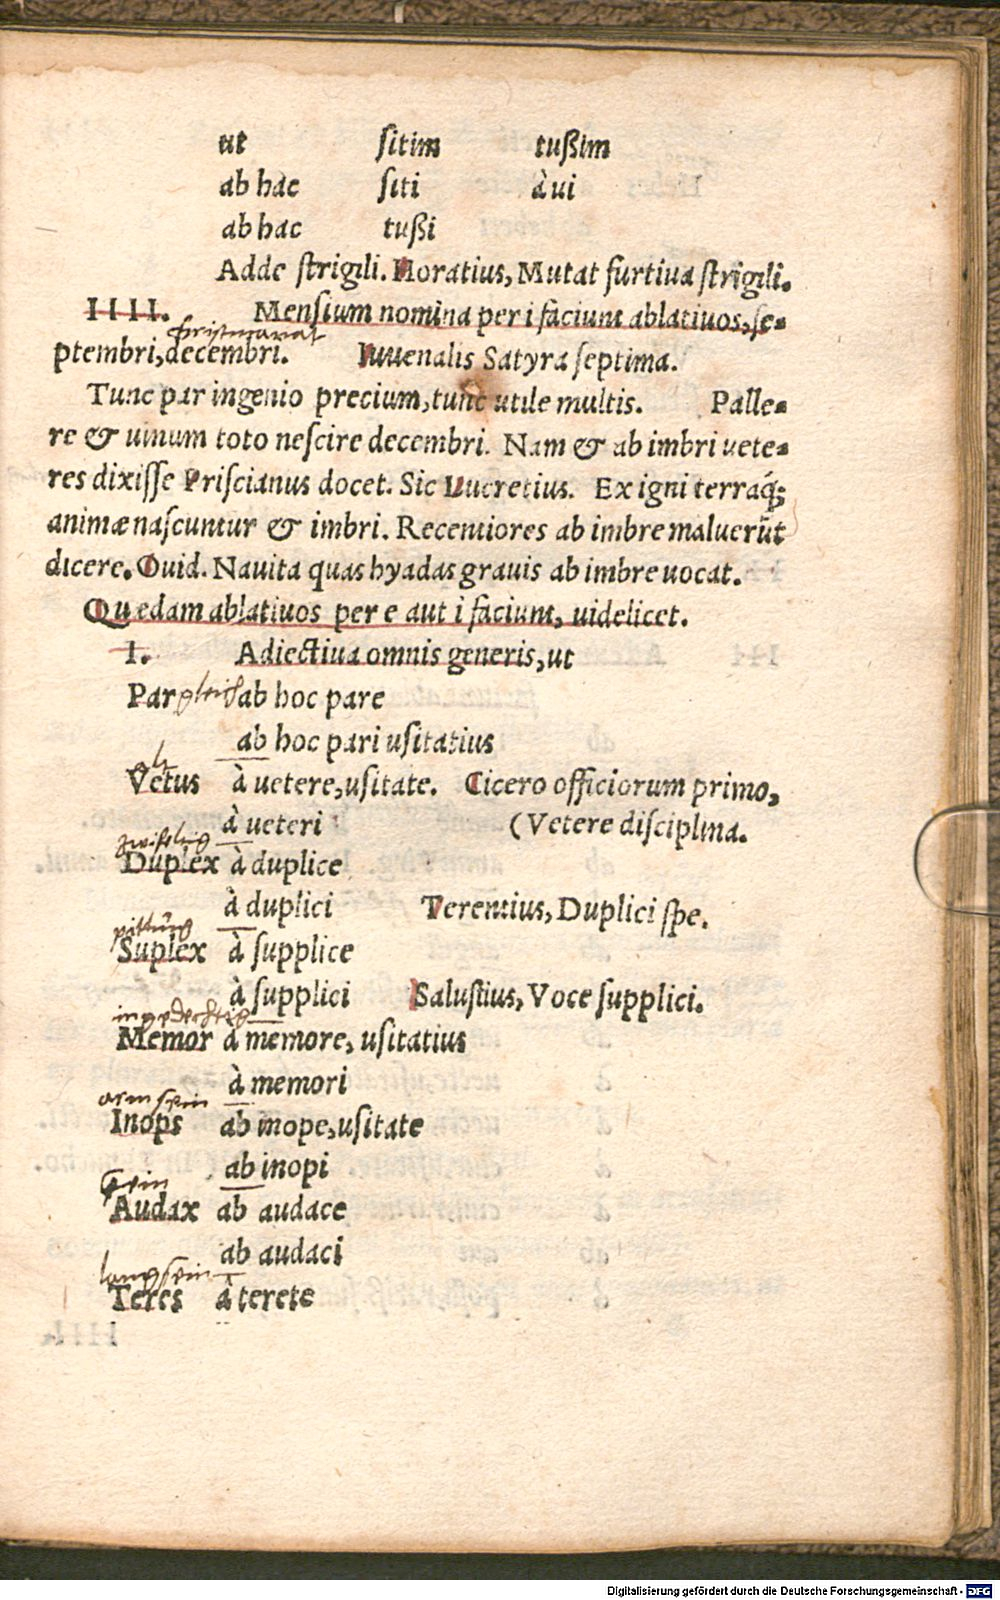 ut ſitim tußim
ab hac ſiti à ui
ab hac tußi
Adde ſtrigili. Horatius, Mutat furtiua ſtrigili.
IIII. Menſium nomina per i faciunt ablatiuos, ſe-
ptembri, decembri. Iuuenalis Satyra ſeptima.
Tunc par ingenio precium, tunc utile multis. Palle-
re & uinum toto neſcire decembri. Nam & ab imbri uete-
res dixiſſe Priſcianus docet. Sic Lucretius. Ex igni terraq́;
animæ naſcuntur & imbri. Recentiores ab imbre maluerūt
dicere. Ouid. Nauita quas hyadas grauis ab imbre uocat.
Quædam ablatiuos per e aut i faciunt, uidelicet.
I. Adiectiua omnis generis, ut
Par gleich ab hoc pare
ab hoc pari uſitatius
alt
Vetus à uetere, uſitate. Cicero officiorum primo,
à ueteri (Vetere diſciplina.
Duplex à duplice
à duplici Terentius, Duplici ſpe.
Suplex à ſupplice
à ſupplici Saluſtius, Voce ſupplici.
Memor à memore, uſitatius
à memori
Inops ab inope, uſitate
ab inopi
Audax ab audace
ab audaci
Teres à terete
Digitalisierung gefördert durch die Deutsche Forschungsgemeinschaft - DFG